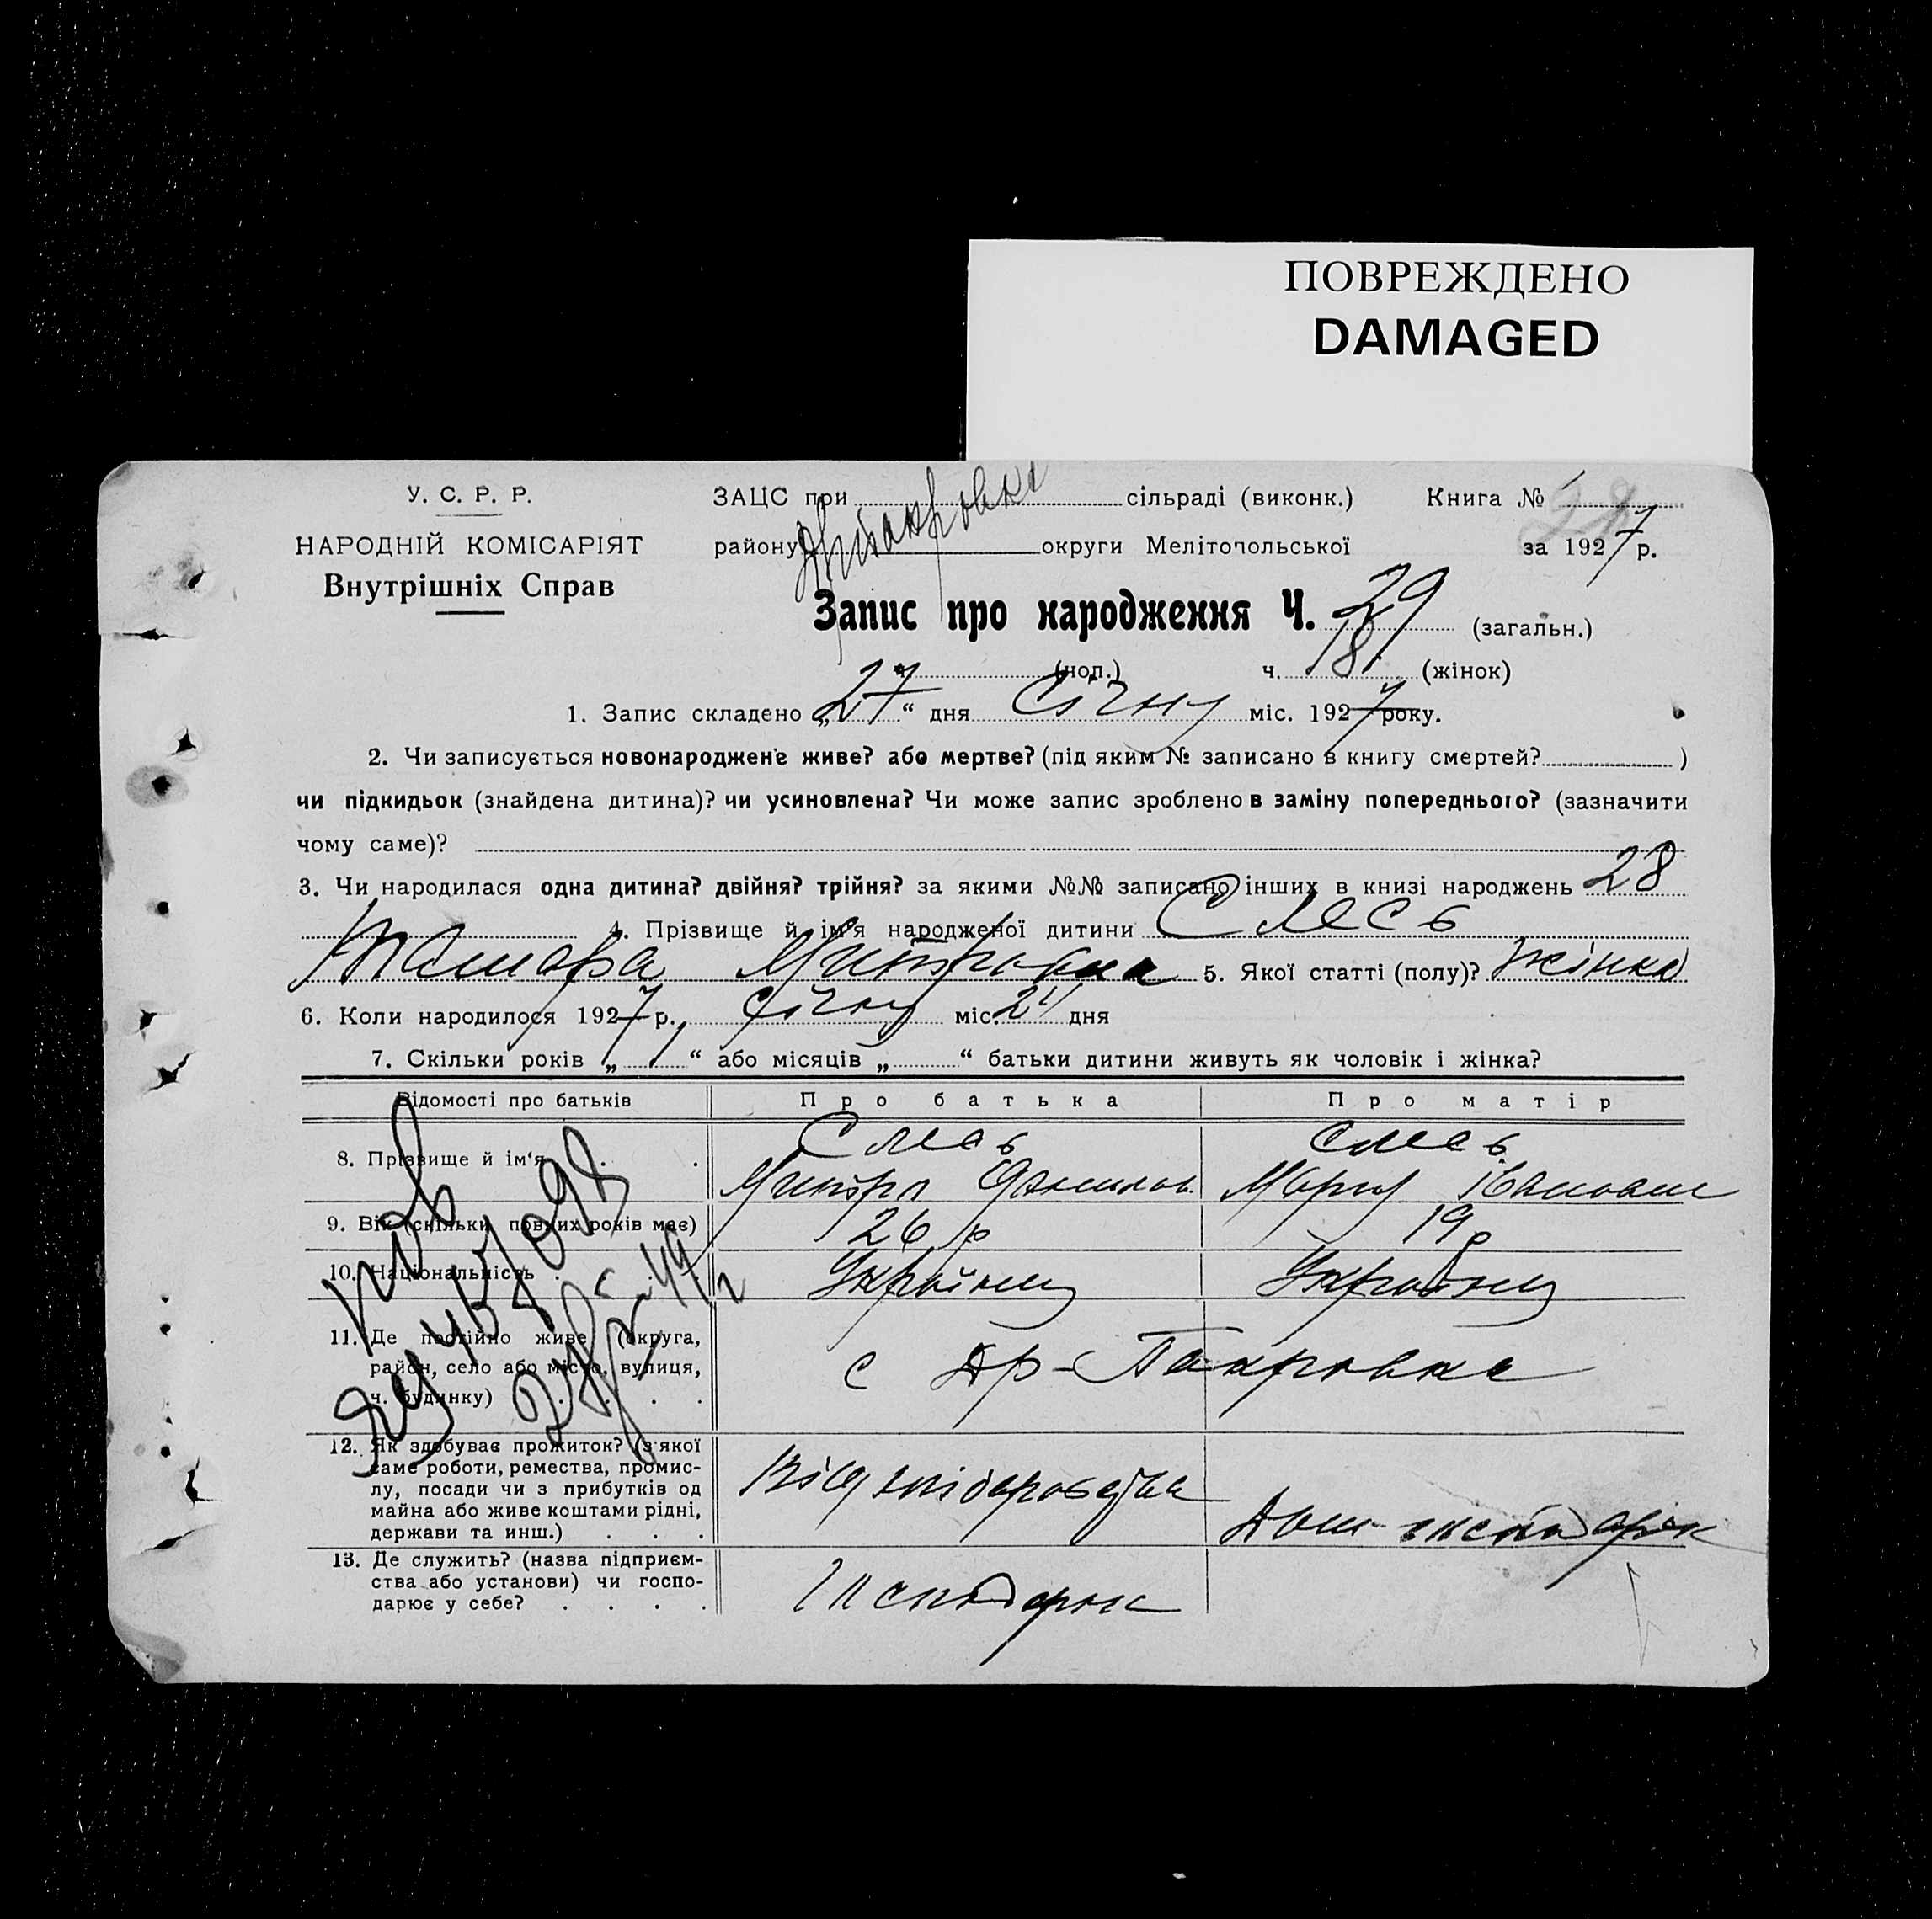 ПОВРЕЖДЕНО
DAMAGED
У. С. Р. Р.
НАРОДНІЙ КОМІСАРІЯТ
Внутрішніх Справ
ЗАЦС при сільраді (виконк.) Книга №
району округи Мелітопольської за 1927 р.
Запис про народження Ч. 29 (загальн.)
ч. (чол.) ч. 18 (жінок)
1. Запис складено „27“ дня Січня міс. 1927 року.
2. Чи записується новонароджене живе? або мертве? (під яким № записано в книгу смертей? )
чи підкидьок (знайдена дитина)? чи усиновлена? Чи може запис зроблено в заміну попереднього? (зазначити
чому саме)?
3. Чи народилася одна дитина? двійня? трійня? за якими №№ записано інших в книзі народжень 28
4. Прізвище й ім'я народженої дитини Слесь
Тамара Митровна 5. Якої статті (полу)? Жінка
6. Коли народилося 1927 р. Січня міс. 21 дня
7. Скільки років „1“ або місяців „ “ батьки дитини живуть як чоловік і жінка?
Відомості про батьків Про батька Про матір
8. Прізвище й ім'я Слесь Слесь
Митро Данилов Мария Івановна
9. Вік (скільки повних років має) 26 р 19 р
10. Національність
11. Де постійно живе (округа,
район, село або місто, вулиця,
ч. будинку)
с Др-Пакровка
12. Як здобуває прожиток? (з якої
саме роботи, ремества, промис-
лу, посади чи з прибутків од
майна або живе коштами рідні,
держави та инш.)
Від хліборобства
Дом господарка
13. Де служить? (назва підприєм-
ства або установи) чи госпо-
дарює у себе?